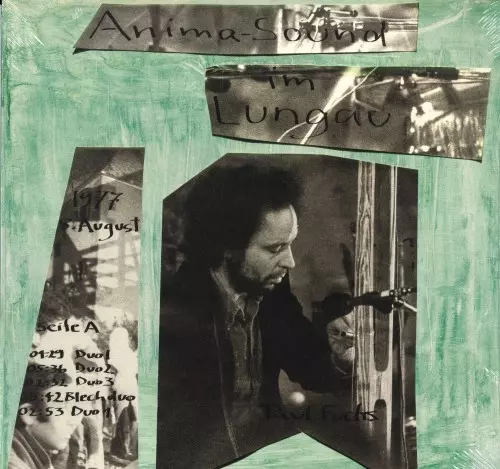 Anima-Sound
im
Lungau
1977
August
Seite A
04:29 Duo 1
05:36 Duo 2
02:32 Duo 3
Blechduo
02:53 Duo 4
Paul Fuchs